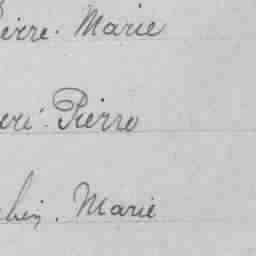 ierre. Marie
eri. Pierre
hin. Marie